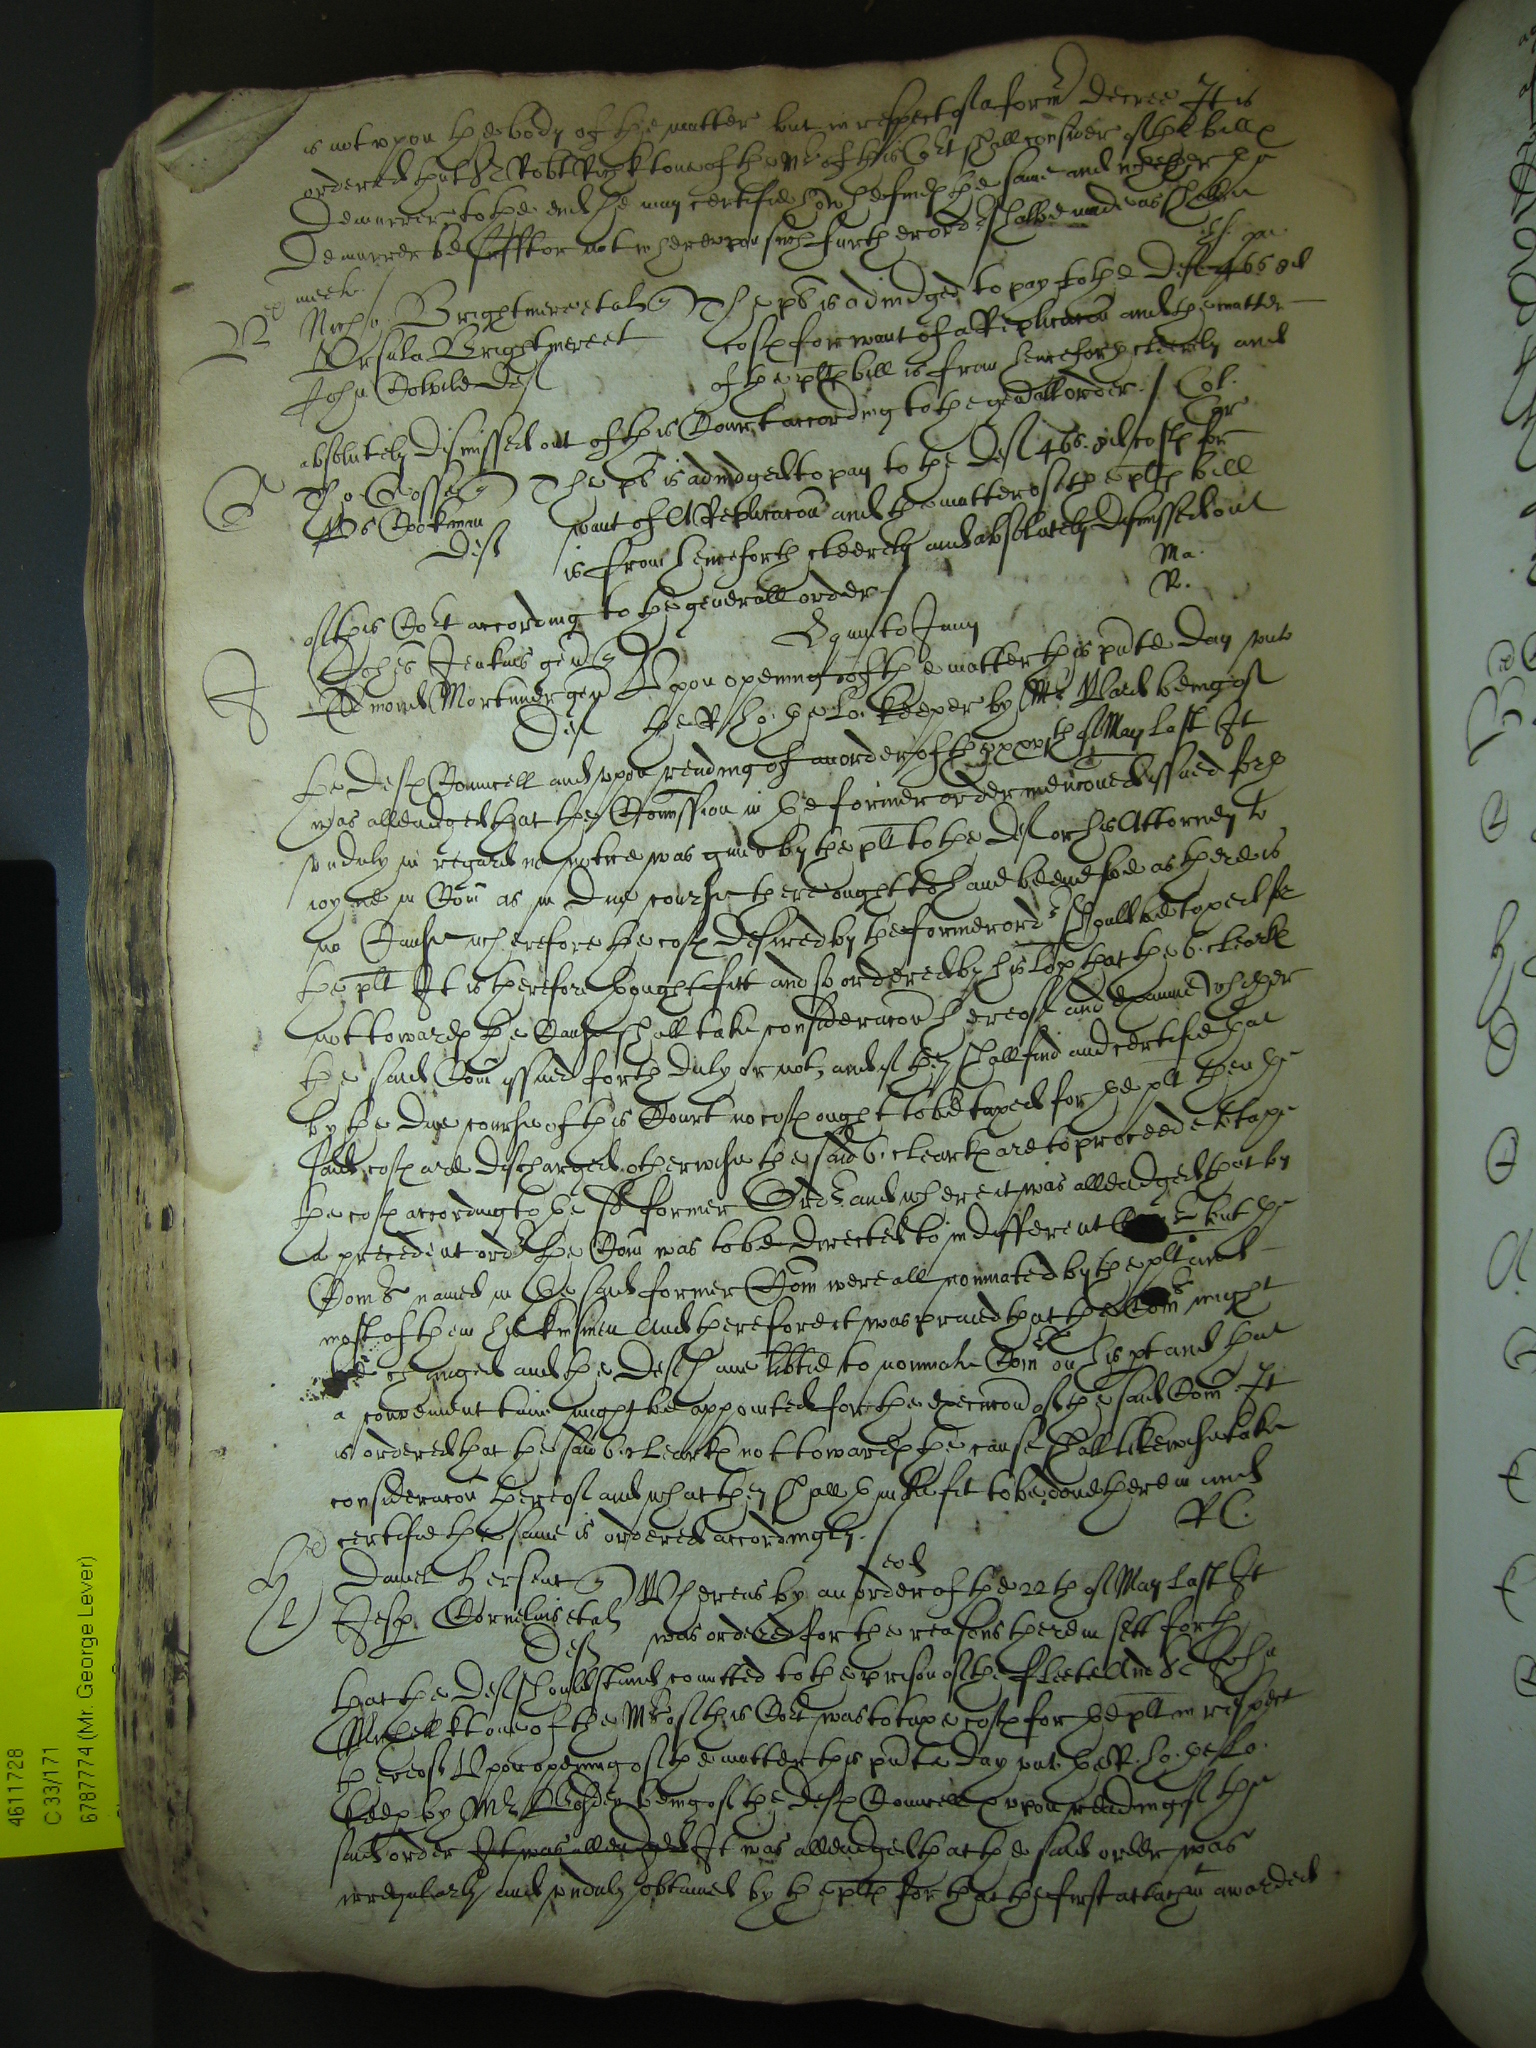 is not vpon the body of the matter but in respect of a form decree It is
ordered that Sr Robt Rich kt one of the Mrs of this Cort shall consider of the bill &
Demurrer to the end he may certifie how he finds the same and whether the
Demurrer be suffit or not whervpon such further order shalbe made as shalbe
meete
Nicho Brightmere et al The pl is adiudged to pay to the Deft 46s 8d
Vrsula Brightmere et costs for want of a Replicacon and the matter
John Deft of the plts bill is from henceforth cleerly and
absolutely dismissed out of this Court according to the generall order Col.
Tho. Crosse The pl is adiudged to pay to the Deft 46s 8d costs for
Bookman want of A Replicacon and the matter of the plts bill
Deft is from henceforth cleerely and absolutely dismissed out
of this Cort according to the generall order Ma.
R.
Quinto Junij
Johes Jenkins gen Vpon opening of the matter this pnte day vnto
Edmond Mortimer gen Deft the R. ho. the Lo. Keeper by Mr Ward being of
the Defts Councell and vpon reading of an order of the xxvth of May last It
was alleadged that the Comission in the former order menconed issued forth
vnduly in regard no notice was giuen by the plt to the Deft or his Attorney to
ioyne in Com as in due course there ought to and be as there is
no Cause wherefore the costs desired by the former ordr should be taxed for
the plt It is therefore thought fitt and so ordered by his Lop that the 6. clearkes
not towards the Cause shall take consideracon hereof and examine whether
the said Com issued forth duly or not, and if they shall find and certifie that
by the due course of this Court no costs ought to be taxed for the plt then the
said costs are discharged otherwise the said 6. clearkes are to proceede to taxe
the costs according to the sd former Ordr and where it was alleadged that by
a precedent ordr the Com was to be directed to indifferent but the
Comrs named in the said former Com were all nominated by the plt and
most of them his kinsmen And therefore it was praied that the Comrs might
be changed and the Deft haue libtie to nominate Comrs on his pt and that
a convenient time might be appointed for the execucon of the said Com It
is ordered that the said 6. clearkes not towards the cause shall likewise take
consideracon hereof and what they shall thinke fit to be done therein and
certifie the same is ordered accordingly. RC.
eod
Daniel Hersent Whereas by an order of the 22th of May last It
Jesp. Cornelius et al Deft was ordered for the reasons therein sett forth
that the Deft should stand comitted to the prison of the Fleete And Sr John
kt one of the Mrs of this Cort was to taxe costs for the plt in respect
thereof Vpon opening of the matter this pnte day vnto the R. ho. the Lo.
Keep by Mr being of the Defts Councell & vpon reading of the
said order It was alleadged It was alleadged that the said order was
irregularly and vnduly obtained by the plts for that the first attachmt awarded
4611728
C 33/171
6787774 (Mr. George Lever)